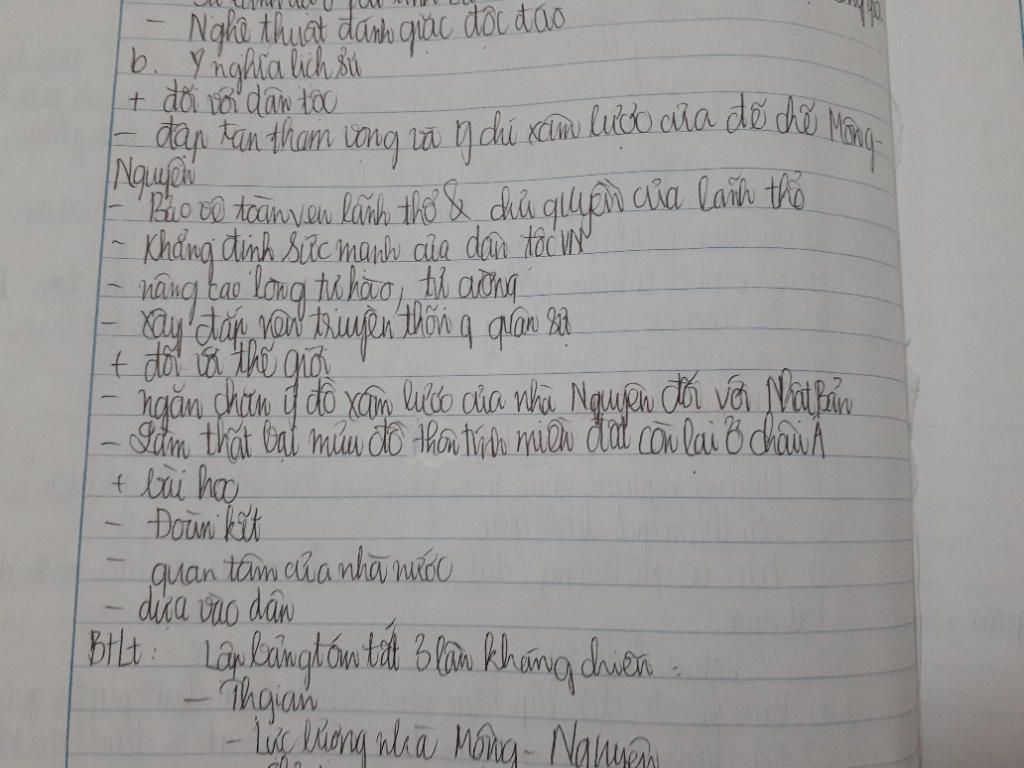 - Nghệ thuật đánh giặc độc đáo
b. Ý nghĩa lịch sử
+ đối với dân tộc
- đập tan tham vọng và ý chí xâm lược của đế chế Mông-
Nguyên
- Bảo vệ toàn vẹn lãnh thổ & chủ quyền của lãnh thổ
- Khẳng định sức mạnh của dân tộc VN
- nâng cao lòng tự hào, tự cường
- xây đắp nên truyền thống quân sự
+ đối với thế giới
- ngăn chặn ý đồ xâm lược của nhà Nguyên đối với Nhật Bản
- Làm thất bại mưu đồ thôn tính miền đất còn lại ở châu Á
+ bài học
- Đoàn kết
- quan tâm của nhà nước
- dựa vào dân
BTLt: Lập bảng tóm tắt 3 lần kháng chiến:
- Thgian
- Lực lượng nhà Mông - Nguyên